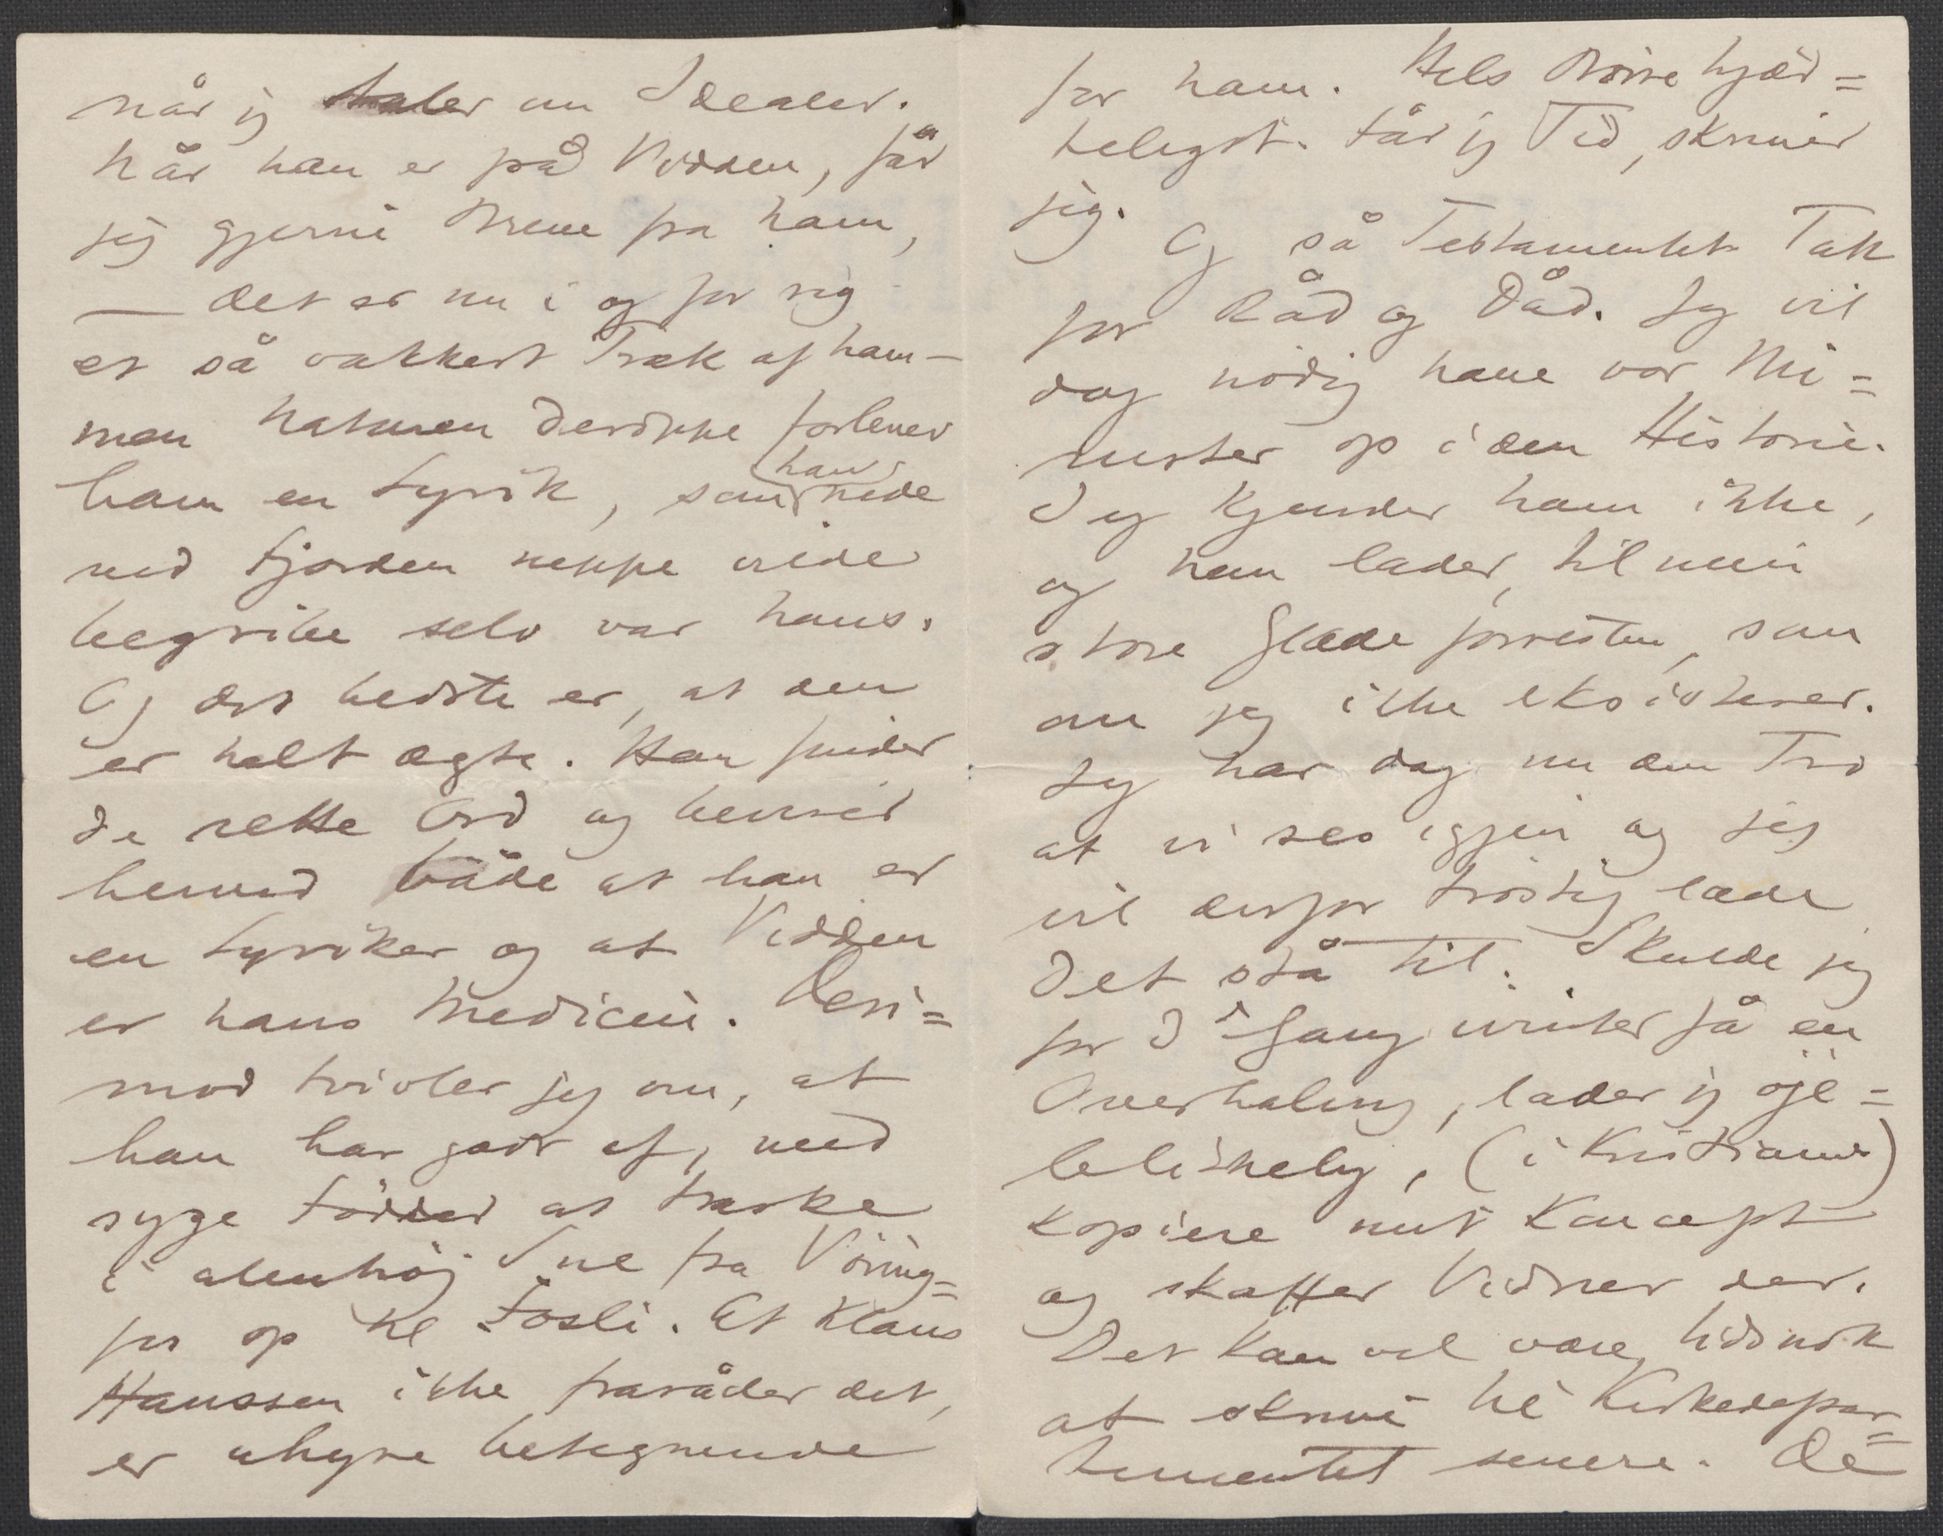 når jeg taler om Idealer.
Når han er på Vidden, får
jeg gjerne Breve fra ham,
— det er nu i og for sig
et så vakkert Træk af ham —
men Naturen deroppe forlener
ham en Lyrik, som han nede
ved Fjorden neppe vilde
begribe selv var hans.
Og det bedste er, at den
er helt ægte. Han finder
de rette Ord og beviser
herved både at han er
en Lyriker og at Vidden
er hans Medicin. Deri=
mod tvivler jeg om, at
han har godt af, med
syge Fødder at traske
i alenhøj Sne fra Vöring=
fos op til Fosli. At Klaus
Hanssen ikke fraråder det,
er uhyre betegnende
for ham. Hils Börre hjær=
teligst. Får jeg Tid, skriver
jeg.
Og så Testamentet. Tak
for Råd og Dåd. Jeg vil
dog nödig have vor Mi=
nister op i den Historie.
Jeg kjender ham ikke,
og han lader, til min
store Glæde forresten, som
om jeg ikke eksisterer.
Jeg har dog nu den Tro
at vi ses igjen og jeg
vil derfor tröstig lade
det stå til. Skulde jeg
for Gang vinter få en
Overhaling, lader jeg öje=
blikkelig, (i Kristiania)
kopiere mit Koncept
og skaffer Vidner der.
Det kan vel være tidsnok
at skrive til Kirkedepar=
tementet senere. De